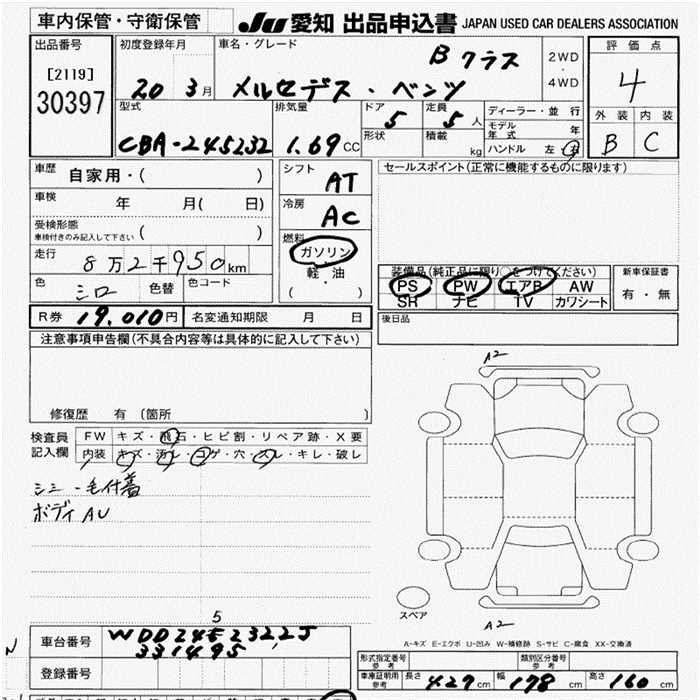 車内保管・守衛保管 JU 愛知 出品申込書 JAPAN USED CAR DEALERS ASSOCIATION
出品番号 初度登録年月 車名・グレード 評価点
[2119] 30397
20 3月 メルセデス・ベンツ Bクラス 2WD・4WD
4
外装 内装
B C
型式 排気量 ドア 定員 ディーラー・並行
CBA-245232 1.69CC 5 5人
モデル年式 年
形状 積載 kg ハンドル 左・右
車歴 自家用・( )
車検 年 月( 日)
受検形態
車検付きのみ記入して下さい ( )
走行 8万2千950km
色 シロ 色替 色コード
シフト AT
冷房 AC
燃料 ガソリン
軽・油
( )
セールスポイント(正常に機能するものに限ります)
装備品(純正品に限り○をつけてください)
PS PW エアB AW
SR ナビ TV カワシート
新車保証書
有・無
R券 19,010円 名変通知期限 月 日
後日品
注意事項申告欄(不具合内容等は具体的に記入して下さい)
修復歴 有 (箇所
検査員記入欄 FW キズ・飛石・ヒビ割・リペア跡・X要
内装 キズ・汚レ・コゲ・穴・スレ・キレ・破レ
シミ・毛付着
ボディAU
A2
スペア
A2
A-キズ E-エクボ U-凹み W-補修跡 S-サビ C-腐食 XX-交換済
5
N 車台番号 WDD2452322J
331495
登録番号
形式指定番号 参考 類別区分番号 参考
車庫証明用 参考 長さ 427cm 幅 178cm 高さ 160cm